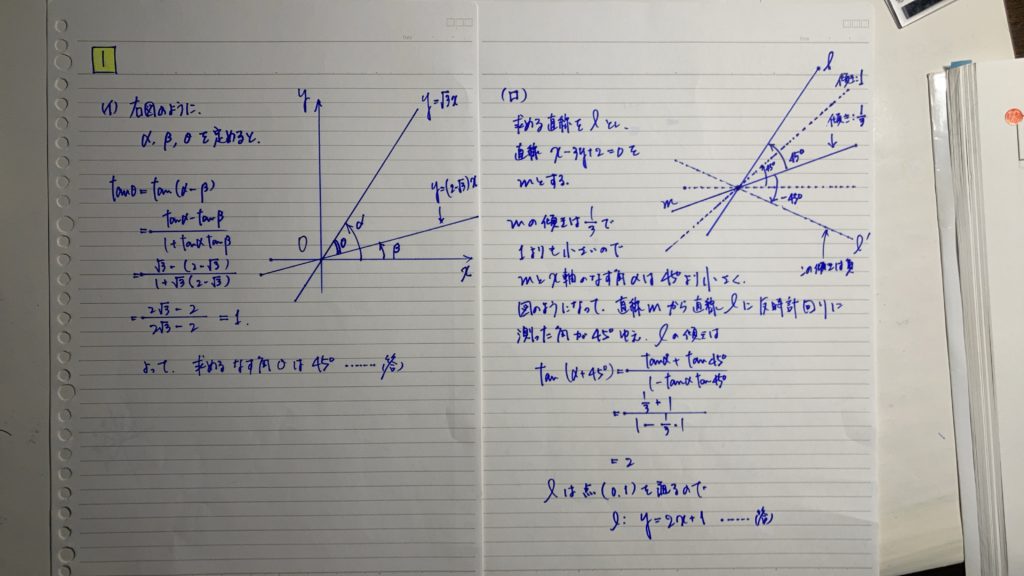 1
(イ) 右図のように.
α, β, θ を定めると.
tanθ = tan(α-β)
= (tanα-tanβ)/(1+tanα tanβ)
= (√3-(2-√3))/(1+√3(2-√3))
= (2√3-2)/(2√3-2) = 1.
よって. 求めるなす角θは45° ……(答)
y
y=√3x
y=(2-√3)x
α
θ
β
O
x
(ロ)
求める直線をlとし.
直線 x-3y+2=0を
mとする.
mの傾きは1/3で
1よりも小さいので
mとx軸のなす角αは45°より小さく.
図のようになって. 直線mから直線lに反時計回りに
測った角が45°ゆえ. lの傾きは
tan(α+45°) = (tanα+tan45°)/(1-tanα tan45°)
= (1/3+1)/(1-1/3・1)
= 2
lは点(0,1)を通るので
l: y=2x+1 ……(答)
l
傾き:1
傾き:1/3
45°
45°
-45°
m
l'
この傾きは負
Date